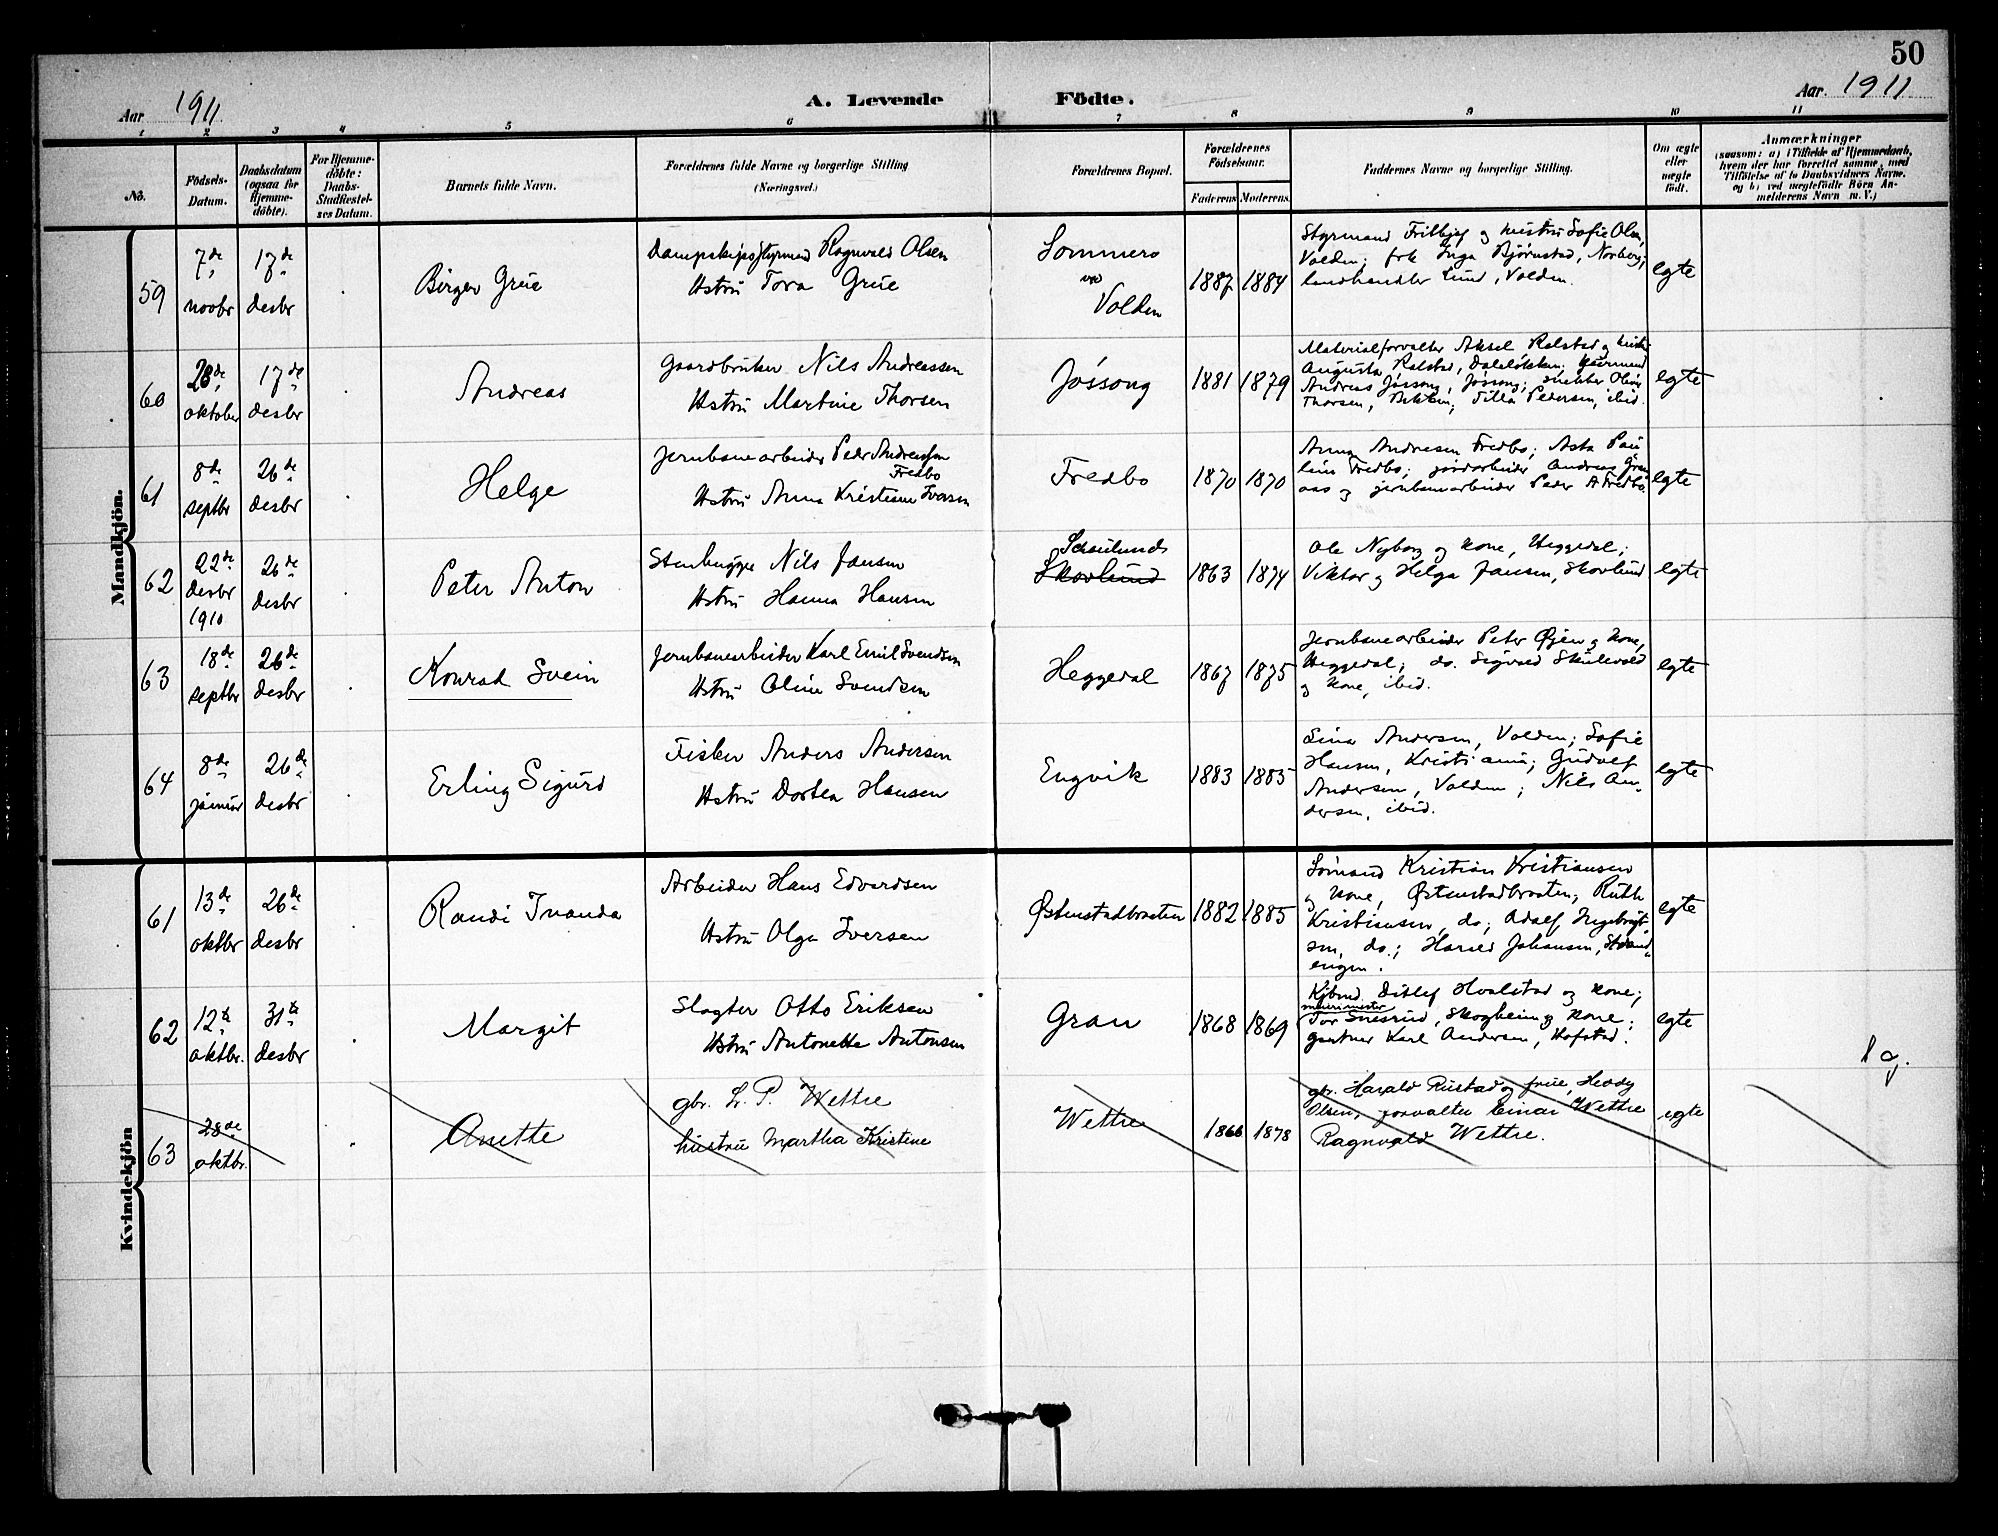 50
Aar 1911
A. Levende Födte.
Aar. 1911
1 2 3 4 5 6 7 8 9 10 11
No.
Födsels-Datum.
Daabsdatum (ogsaa for Hjemme-döbte).
For Hjemme-döbte: Daabs-Stadfestel-ses Datum.
Barnets fulde Navn.
Forældrenes fulde Navne og borgerlige Stilling (Næringsvei.)
Forældrenes Bopæl.
Forældrenes Födselsaar.
Faderens Moderens
Faddernes Navne og borgerlige Stilling.
Om ægte eller uægte födt.
Anmærkninger
(saasom: a) i Tilfælde af Hjemmedaab,
hvem der har forrettet samme, med
Tilföielse af to Daabsvidners Navne.
og b) ved uægtefödte Börn An-
melderens Navn m. V.)
Mandkjön.
59
7de novbr
17de desbr
Birger Grüe
Dampskipsstyrmand Ragnvald Olsen
Hstrü Tora Grüe
Sommero
ved
Volden
1887 1884
Styrmand Fritbjof og hüstrü Sofie Olsen,
Volden; frk Inga Bjørnstad, Norberg;
landhandler Lund, Volden.
egte
60
28de oktober
17de desbr
Andreas
Gaardbrüker Nils Andreassen
Hstrü Martine Thorsen
Jøssong
1881 1879
Materialforvalter Aksel Ralstad og hüstrü
Augusta Ralstad, Daleløkken; gaarmand
Andreas Jøssong, Jøssong; snekker Olüf
Thorsen, Tilla Pedersen, ibid.
egte
61
8de septbr
26de desbr
Helge
Jernbanearbeider Peder Andreassen
Fredbo
Hstrü Anna Kristiane Iversen
Fredbo
1870 1870
Anna Andresen Fredbo; Asta Paü
line Fredbo; jordarbeider Andreas Gran
aas og jernbanearbeider Peder A Fredbo.
egte
62
22de desbr 1910
26de desbr
Peter Anton
Stenhugger Nils Jansen
Hstrü Hanna Hansen
Skovlund
1863 1874
Ole Nyborg og kone, Heggedal;
Viktor og Helga Jansen, Skovlünd
egte
63
18de septbr
26de desbr
Konrad Svein
Jernbanearbeider Karl Emil Svendsen
Hstrü Oline Svendsen
Heggedal
1867 1875
Jernbanearbeider Peter Øjen og kone,
Heggedal; do. Sigvard Skülevold
og kone, ibid.
egte
64
8de janüar
26de desbr
Erling Sigürd
Fisker Anders Andersen
Hstrü Dortea Hansen
Engvik
1883 1885
Lina Andersen, Volden; Sofie
Hansen, Kristiania; Güdolf
Andersen, Volden; Nils An-
dersen, ibid.
egte
Kvindekjön
61
13de oktbr
26de desbr
Randi Ivanda
Arbeider Hans Edvardsen
Hstrü Olga Iversen
Østenstadbraaten
1882 1885
Sømand Kristian Kristiansen
og kone, Østenstadbraaten; Rüth
Kristiansen, do; Adolf Ingebrigt-
sen, do.; Harald Johansen, Strand-
engen.
egte
62
12te oktbr.
31te desbr
Margit
Slagter Otto Eriksen
Hstrü Antonette Antonsen
Gran
1868 1869
Kjbmd Ditlef Hvalstad og kone;
mürmester
Tor Snesrüd, Skogheim og kone;
gartner Karl Andersen, Hofstad.
egte
63
28de oktbr.
Anette
gbr. L. P. Wettre
hüstrü Martha Kristine
Wettre
1866 1878
gbr. Harald Rüstad og früe, Heddy
Olsen, forvalter Einar Wettre
Ragnvald Wettre.
egte